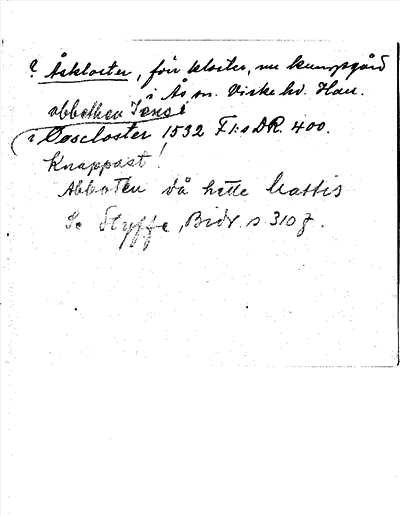 ? Åskloster, förr kloster, nu kungsgård
i Ås sn. Viske hd. Hall.
abbothen Jens i
i Oosecloster 1532 F1:s DR. 400.
Knappast!
Abboten då hette Mattis
Se Styffe, Bidr. s 310 f.